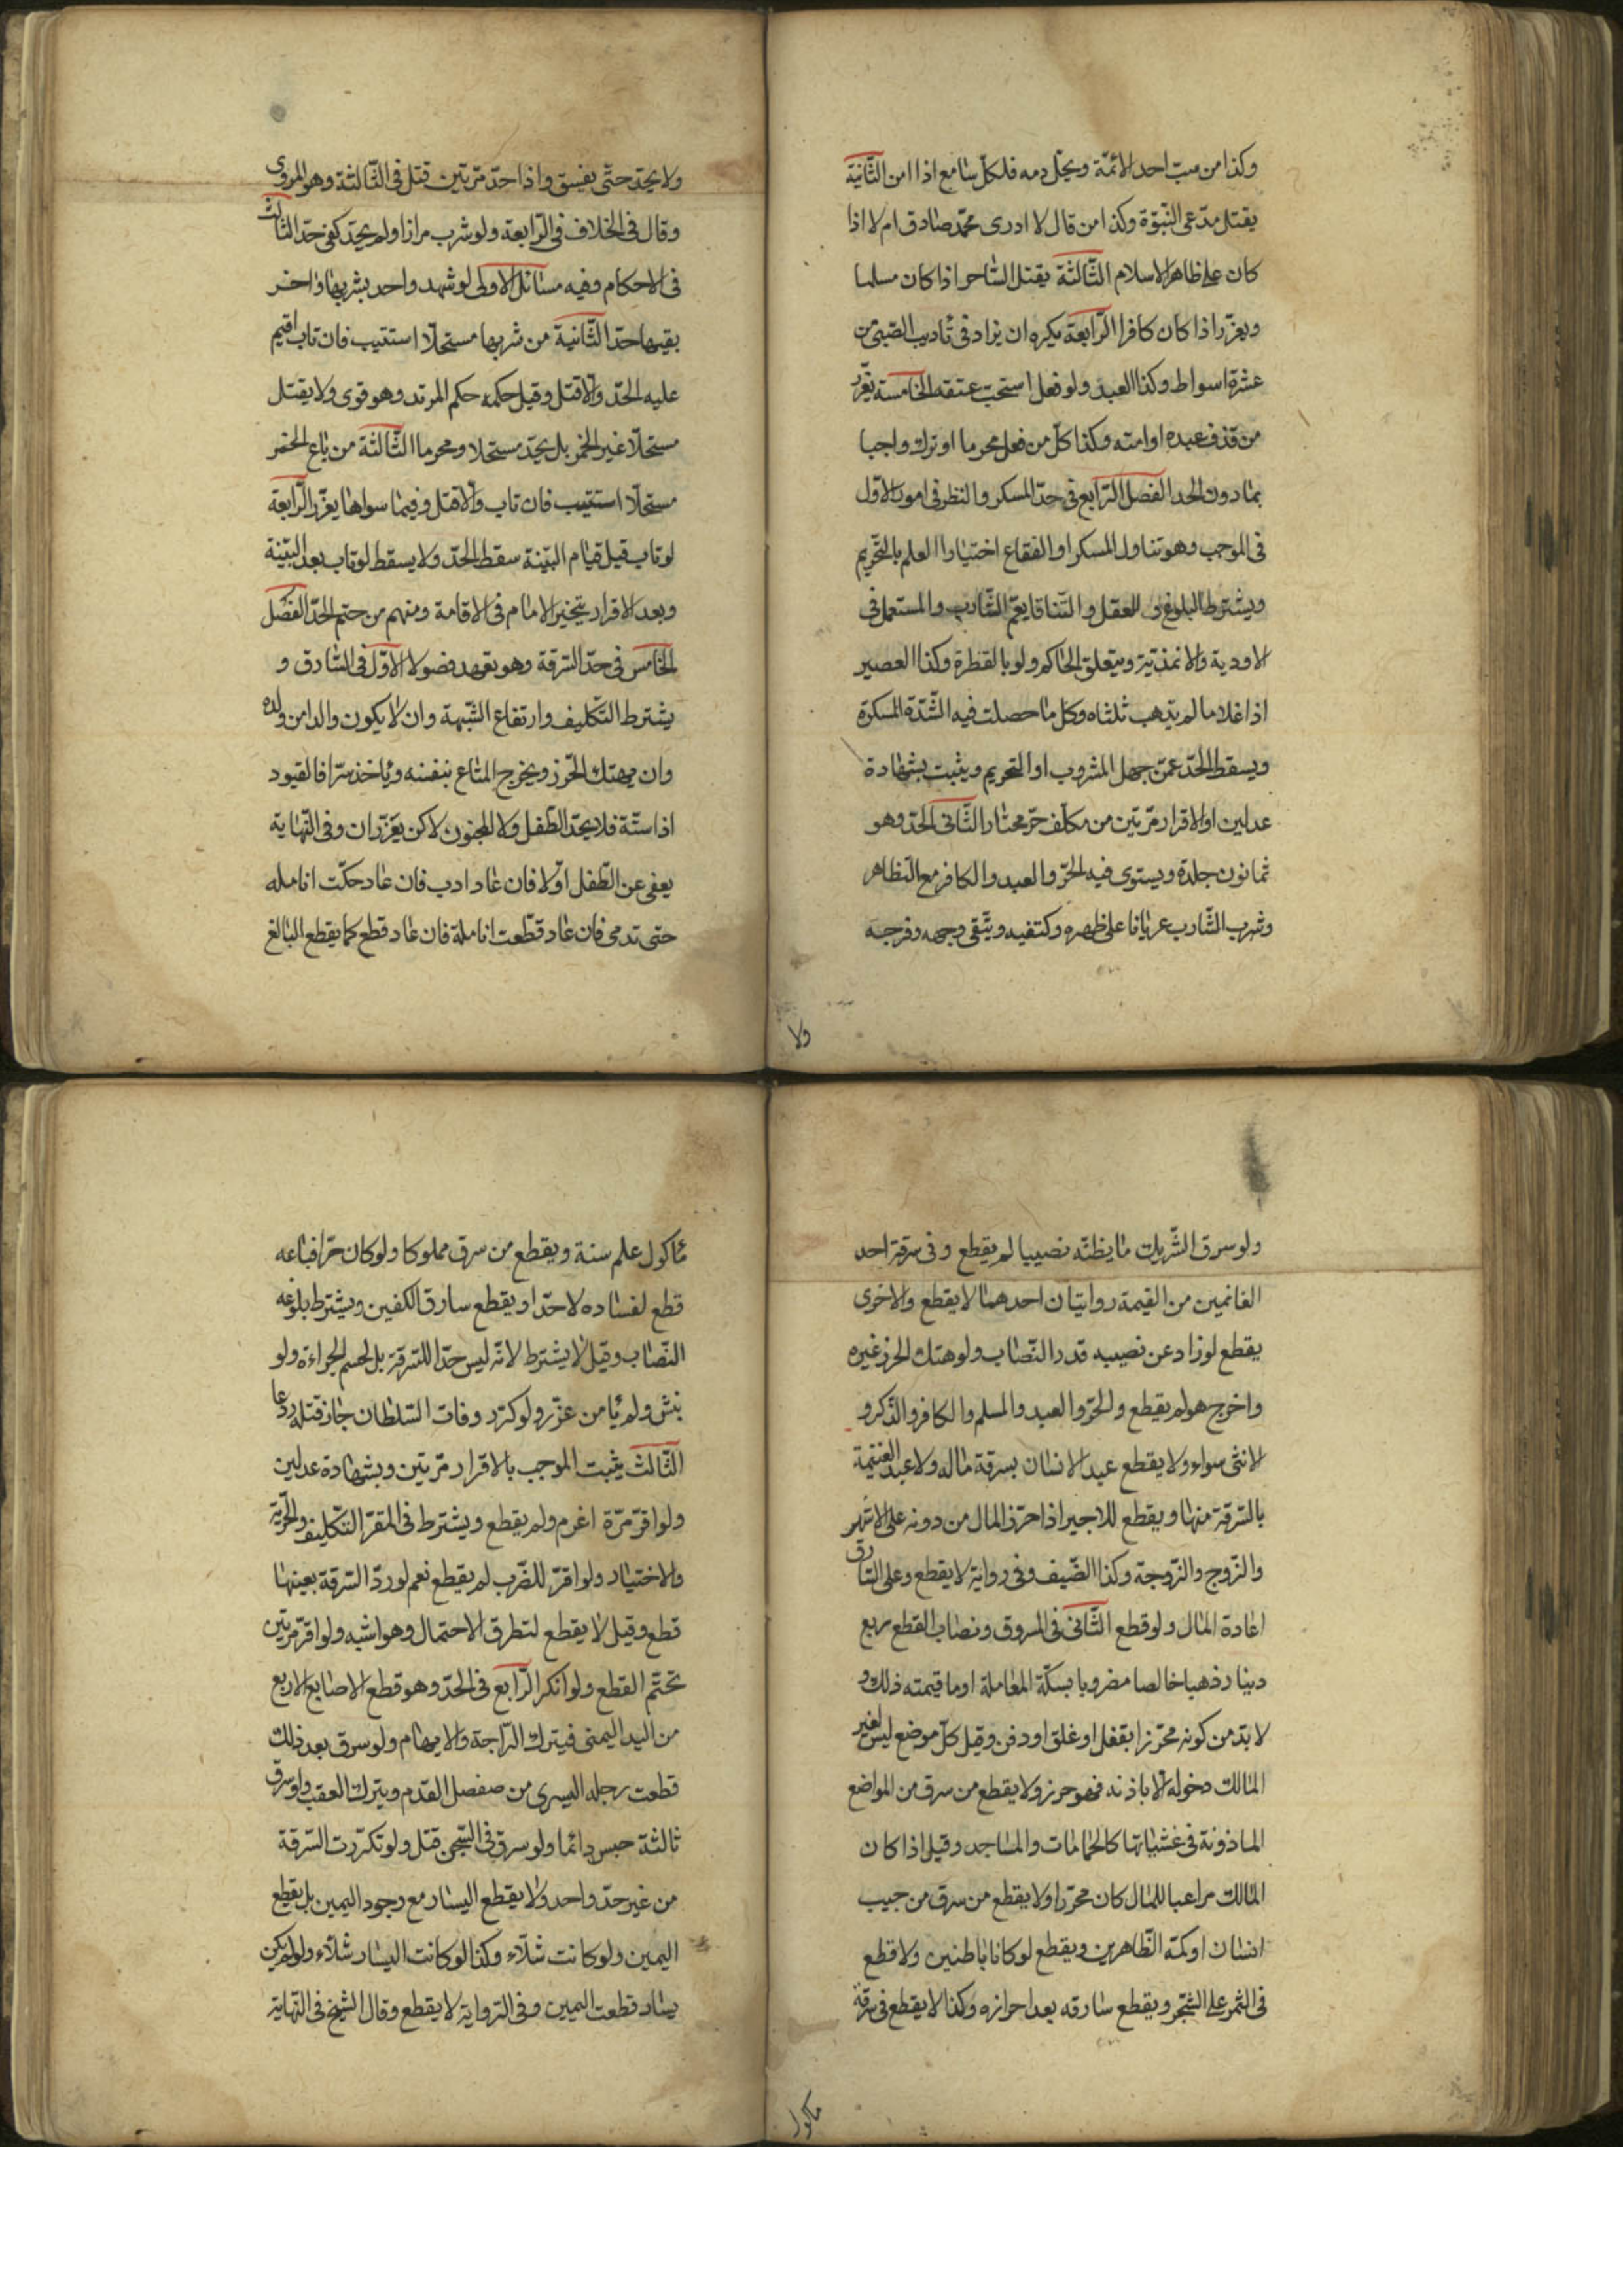 وكذا من سب احد الائمة ويحل دمه فلكل سامع اذا امن الثانية
يقتل مدعى النبوة وكذا من قال لا ادرى محمد صادق ام لا اذا
كان على ظاهر الاسلام الثالثة يقتل الساحر اذا كان مسلما
ويعزر اذا كان كافرا الرابعة يكره ان يزاد فى تاديب الصبى من
عشرة اسواط وكذا العبد ولو فعل استحب عتقه الخامسة يعزر
من قذف عبده او امته وكذا كل من فعل محرما او ترك واجبا
بما دون الحد الفصل الرابع فى حد المسكر والنظر فى امور الاول
فى الموجب وهو تناول المسكر او الفقاع اختيارا العلم بالتحريم
ويشترط البلوغ و العقل والتناقا يعم الشارب والمستعمل فى
الاودية والانمذتية ويتعلق الحاكم ولو بالقطرة وكذا العصير
اذا غلا ما لم يذهب ثلثاه وكل ما حصلت فيه الشدة المسكرة
ويسقط الحد عمن جهل المشروب او التحريم ويثبت بشهادة
عدلين او الاقرار مرتين من مكلف حر مختار الثانى الحد وهو
ثمانون جلدة ويستوى فيه الحر والعبد والكافر مع التظاهر
وشرب الشارب عريانا على ظهره وكتفيه ويتقى وجهه وفرجه
ولا
ولا يحد حتى يفسق واذا حد مرتين قتل فى الثالثة وهو المروى
وقال فى الخلاف فى الرابعة ولو شرب مرارا ولم يحد كفى حد الثالث
فى الاحكام وفيه مسائل الاولى لو شهد واحد بشربها واخر
بقيها حد الثانية من شربها مستحلا استتيب فان تاب اقيم
عليه الحد والا قتل وقيل حكمه حكم المرتد وهو قوى ولا يقتل
مستحلا غير الخمر بل يحد مستحلا ومحرما الثالثة من باع الخمر
مستحلا استتيب فان تاب والا قتل وفيما سواها يعزر الرابعة
لو تاب قبل قيام البينة سقط الحد ولا يسقط لو تاب بعد البينة
وبعد الاقرار يتخير الامام فى الاقامة ومنهم من حتم الحد الفصل
الخامس فى حد السرقة وهو يعهد فصولا الاول فى السارق و
يشترط التكليف وارتفاع الشبهة وان لا يكون والدا من ولده
وان يهتك الحرز ويخرج المتاع بنفسه وياخذ سرا فالقيود
اذا ستة فلا يحد الطفل ولا المجنون لاكن يعزران وفى النهاية
يعفى عن الطفل اولا فان عاد ادب فان عاد حكت انامله
حتى تدمى فان عاد قطعت انامله فان عاد قطع كما يقطع البالغ
ولو سرق الشريك ما يظنه نصيبا لم يقطع وفى سرقة احد
الغانمين من القيمة روايتان احدهما لا يقطع والاخرى
يقطع لو زاد عن نصيبه قدر النصاب ولو هتك الحرز غيره
واخرج هو لم يقطع والحر والعبد والمسلم والكافر والذكر و
الانثى سواء ولا يقطع عبد الانسان بسرقة ماله ولا عبد الغنيمة
بالسرقة منها ويقطع للاجير اذا احرز المال من دونه على الاشهر
والزوج والزوجة وكذا الضيف وفى رواية لا يقطع وعلى السارق
اعادة المال ولو قطع الثانى فى المسروق ونصاب القطع ربع
دينار ذهبا خالصا مضروبا بسكة المعاملة او ما قيمته ذلك و
لا بد من كونه محرزا بقفل او غلق او دفن وقيل كل موضع ليس لغير
المالك دخوله الا باذنه فهو حرز ولا يقطع من سرق من المواضع
الماذونة فى غشيانها كالحمامات والمساجد وقيل اذا كان
المالك مراعيا للمال كان محرزا ولا يقطع من سرق من جيب
انسان او كمه الظاهرين ويقطع لو كانا باطنين ولا قطع
فى الثمر على الشجر ويقطع سارقه بعد احرازه وكذا لا يقطع فى سرقة
ماكول
ماكول علم سنة ويقطع من سرق مملوكا ولو كان حرا فباعه
قطع لفساده لا حدا ويقطع سارق الكفين ويشترط بلوغه
النصاب وقيل لا يشترط لانه ليس حدا للسرقة بل لحسم الجراءة ولو
نبش ولم يامن عزر ولو كرر وفات السلطان جاز قتله ردعا
الثالث يثبت الموجب بالاقرار مرتين وبشهادة عدلين
ولو اقر مرة اغرم ولم يقطع ويشترط فى المقر التكليف والحرية
والاختيار ولو اقر للضرب لم يقطع نعم لو رد السرقة بعينها
قطع وقيل لا يقطع لتطرق الاحتمال وهو اشبه ولو اقر مرتين
تحتم القطع ولو انكر الرابع فى الحد وهو قطع الاصابع الاربع
من اليد اليمنى فيترك الراحة والابهام ولو سرق بعد ذلك
قطعت رجله اليسرى من مفصل القدم ويترك العقب ولو سرق
ثالثة حبس دائما ولو سرق فى السجن قتل ولو تكررت السرقة
من غير حد واحد ولا يقطع اليسار مع وجود اليمين بل يقطع
اليمين ولو كانت شلاء وكذا لو كانت اليسار شلاء ولو لم يكن
يسار قطعت اليمين وفى الرواية لا يقطع وقال الشيخ فى النهاية